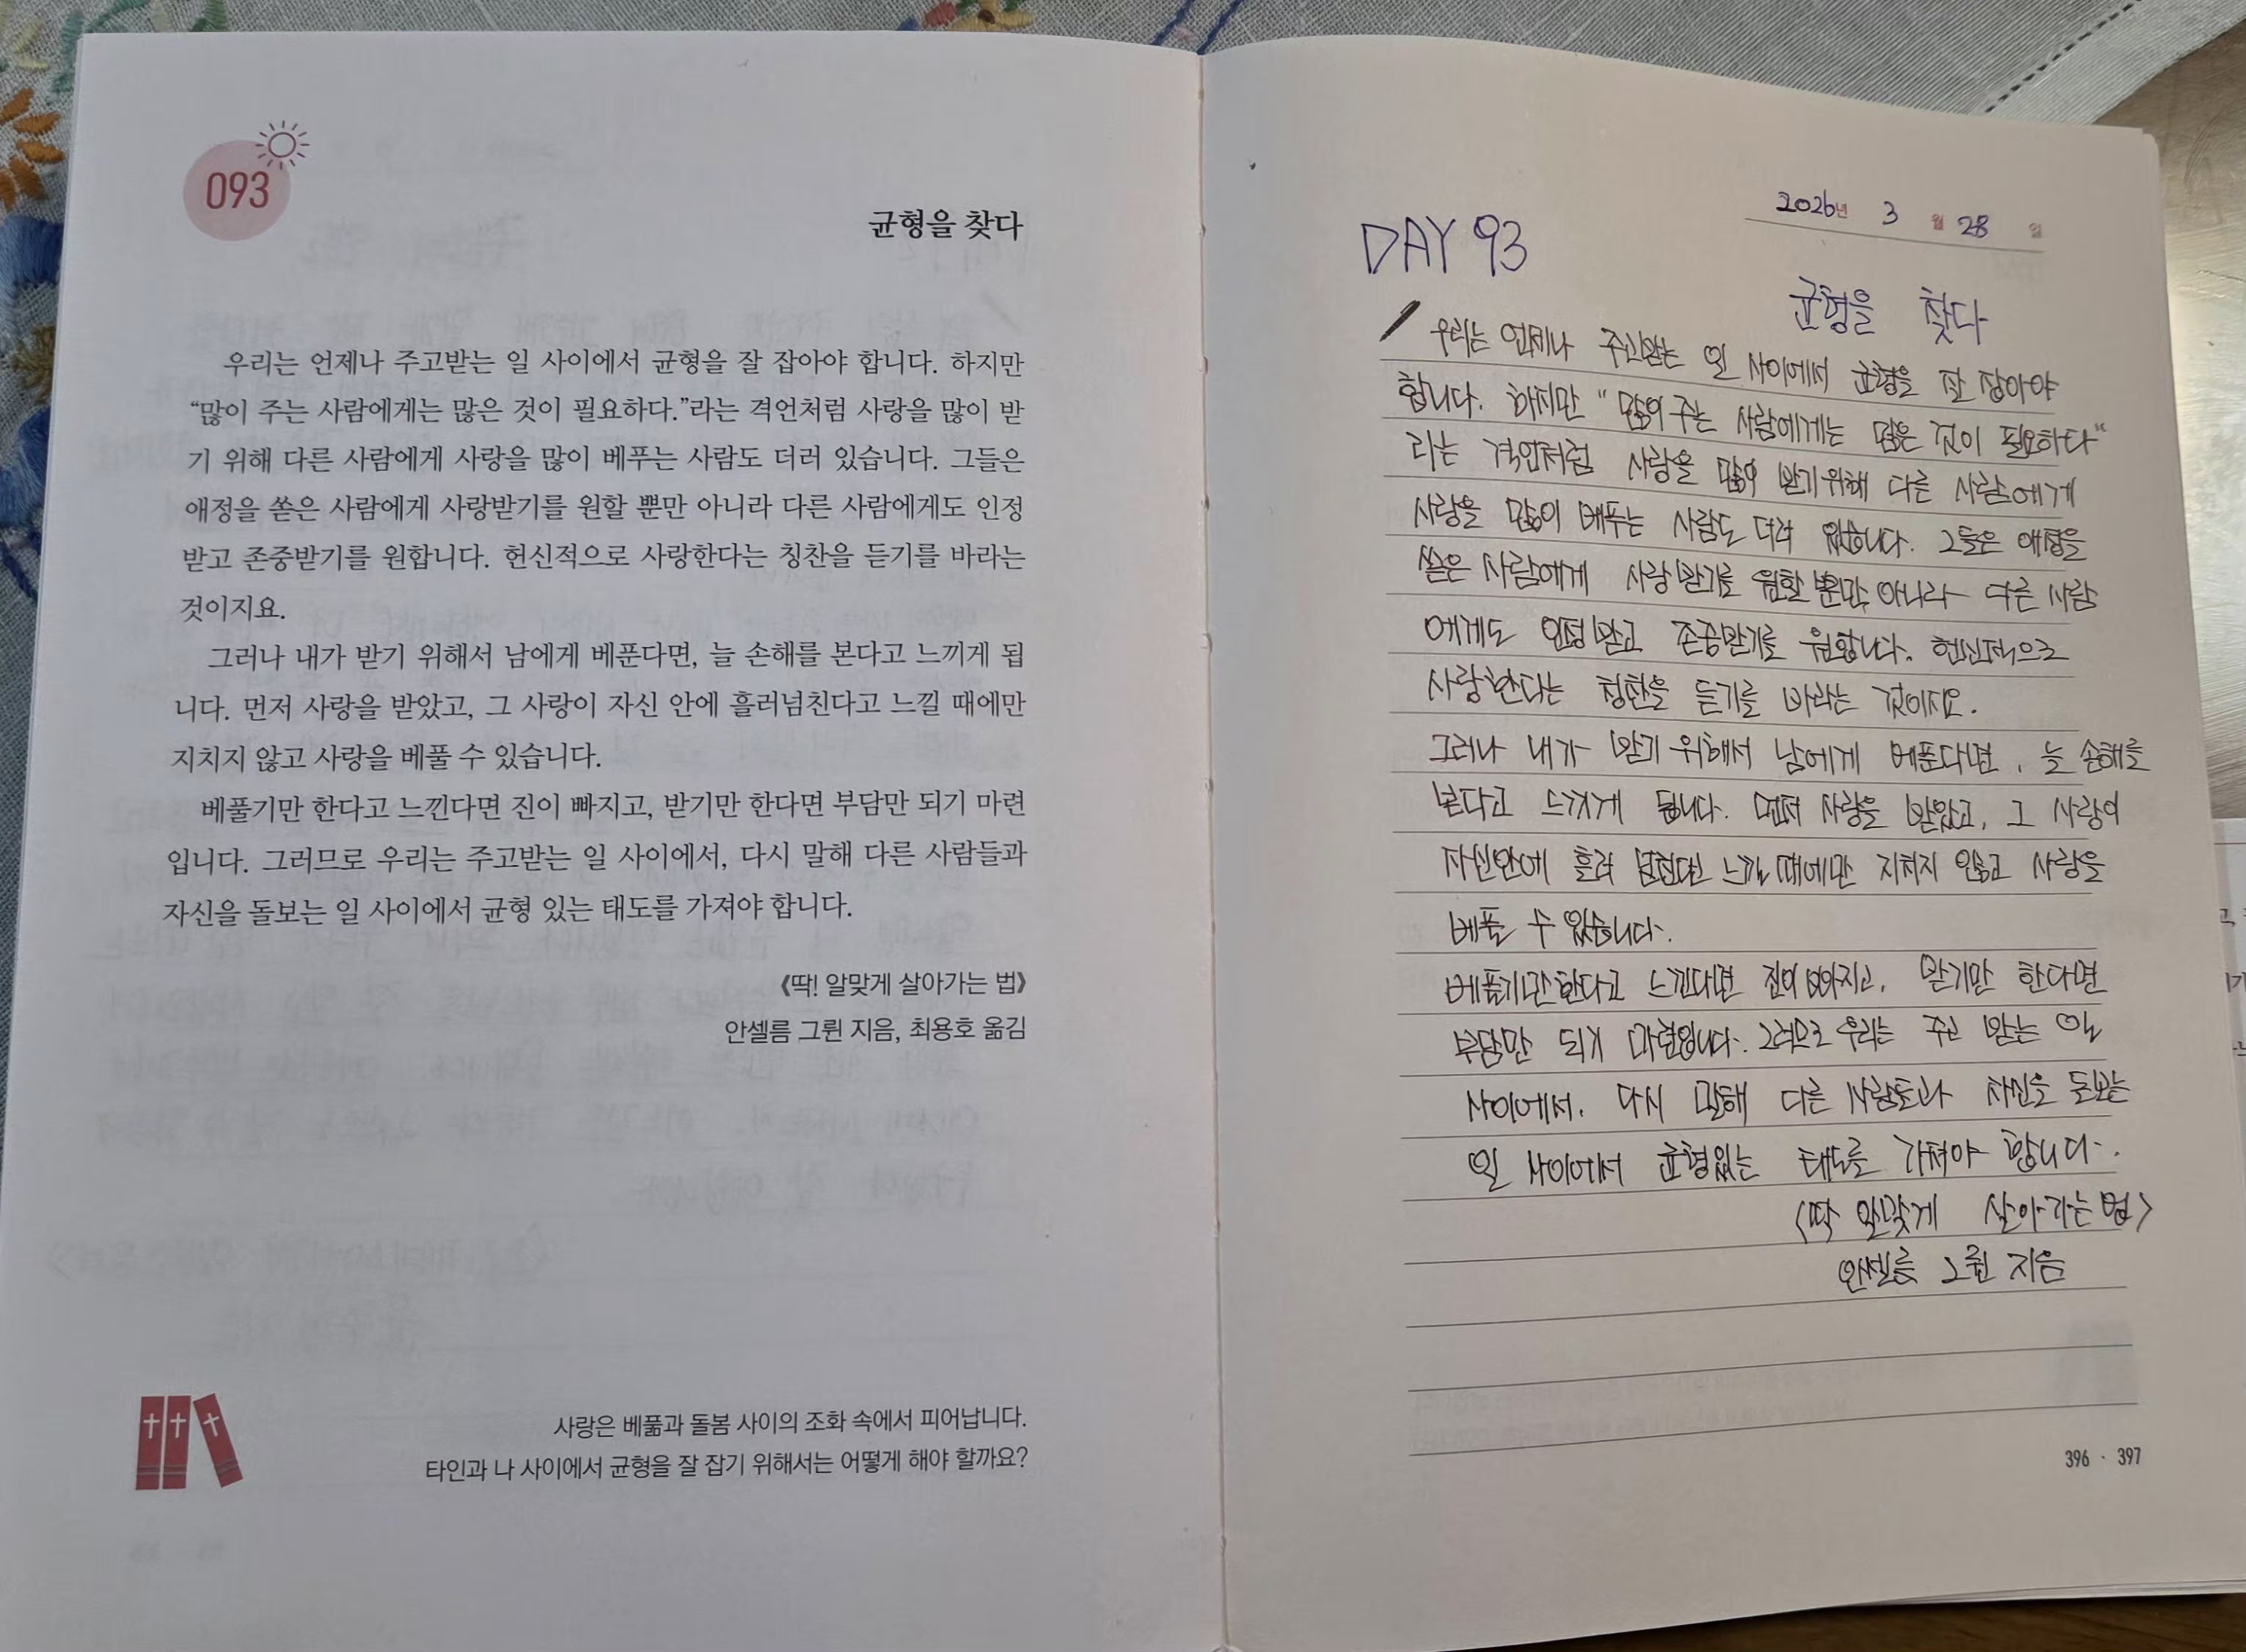 093
균형을 찾다
우리는 언제나 주고받는 일 사이에서 균형을 잘 잡아야 합니다. 하지만
“많이 주는 사람에게는 많은 것이 필요하다.”라는 격언처럼 사랑을 많이 받
기 위해 다른 사람에게 사랑을 많이 베푸는 사람도 더러 있습니다. 그들은
애정을 쏟은 사람에게 사랑받기를 원할 뿐만 아니라 다른 사람에게도 인정
받고 존중받기를 원합니다. 헌신적으로 사랑한다는 칭찬을 듣기를 바라는
것이지요.
그러나 내가 받기 위해서 남에게 베푼다면, 늘 손해를 본다고 느끼게 됩
니다. 먼저 사랑을 받았고, 그 사랑이 자신 안에 흘러넘친다고 느낄 때에만
지치지 않고 사랑을 베풀 수 있습니다.
베풀기만 한다고 느낀다면 진이 빠지고, 받기만 한다면 부담만 되기 마련
입니다. 그러므로 우리는 주고받는 일 사이에서, 다시 말해 다른 사람들과
자신을 돌보는 일 사이에서 균형 있는 태도를 가져야 합니다.
《딱! 알맞게 살아가는 법》
안셀름 그륀 지음, 최용호 옮김
사랑은 베풂과 돌봄 사이의 조화 속에서 피어납니다.
타인과 나 사이에서 균형을 잘 잡기 위해서는 어떻게 해야 할까요?
2026년 3월 28일
DAY 93
균형을 찾다
우리는 언제나 주고받는 일 사이에서 균형을 잘 잡아야
합니다. 하지만 "많이 주는 사람에게는 많은 것이 필요하다"
라는 격언처럼 사랑을 많이 받기위해 다른 사람에게
사랑을 많이 베푸는 사람도 더러 있습니다. 그들은 애정을
쏟은 사람에게 사랑받기를 원할 뿐만 아니라 다른 사람
에게도 인정받고 존중받기를 원합니다. 헌신적으로
사랑한다는 칭찬을 듣기를 바라는 것이지요.
그러나 내가 받기 위해서 남에게 베푼다면, 늘 손해를
본다고 느끼게 됩니다. 먼저 사랑을 받았고, 그 사랑이
자신안에 흘러 느낄 때에만 지치지 않고 사랑을
베풀 수 있습니다.
베풀기만한다고 느낀다면 진이 빠지고, 받기만 한다면
부담만 되기 마련입니다. 그러므로 우리는 주고 받는 일
사이에서. 다시 말해 다른 사람들과 자신을 돌보는
일 사이에서 균형있는 태도를 가져야 합니다.
〈딱 알맞게 살아가는 법〉
안셀름 그륀 지음
396 · 397